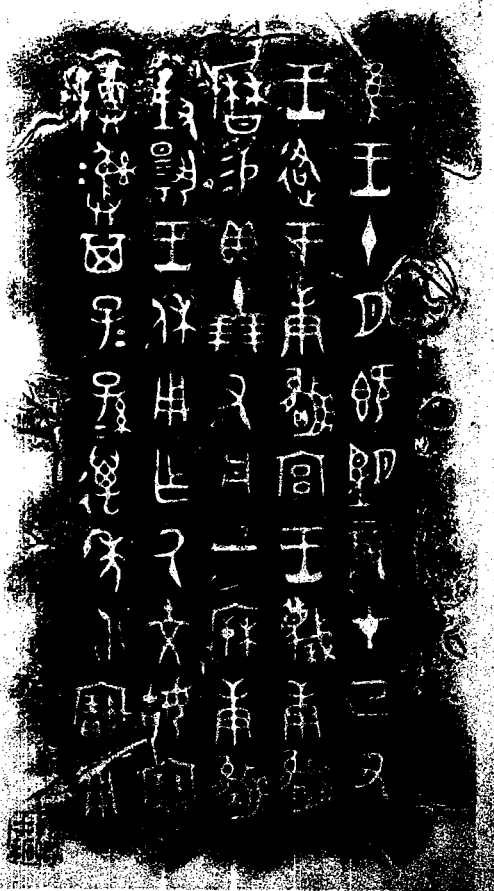 隹王十月既望辰才己丑
王各于庚嬴宫王蔑庚嬴
曆易貝十朋又丹一𣏟庚嬴
對揚王休用乍氒文姑寶
尊彝其子子孫孫萬年永寶用